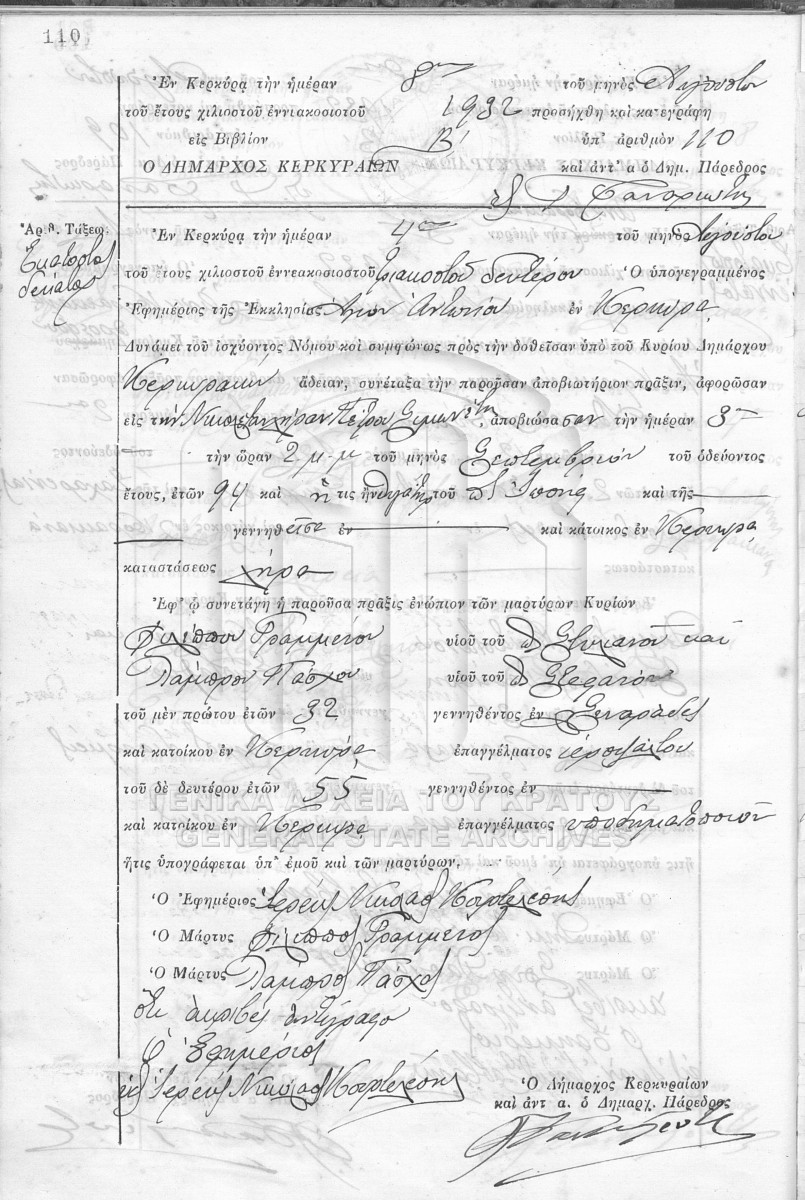 110
Ἐν Κερκύρᾳ τὴν ἡμέραν 8ην τοῦ μηνὸς Αὐγούστου
τοῦ ἔτους χιλιοστοῦ ἐννιακοσιοστοῦ 1932 προσήχθη καὶ κατεγράφη
εἰς Βιβλίον Β' ὑπ' ἀριθμὸν 110
Ο ΔΗΜΑΡΧΟΣ ΚΕΡΚΥΡΑΙΩΝ καὶ ἀντ' α ὁ Δημ. Πάρεδρος
Ἀρ.θ. Τάξεω.
Ἑκατοστὸς
δέκατος
Ἐν Κερκύρᾳ τὴν ἡμέραν 4ην τοῦ μηνὸς Αὐγούστου
τοῦ ἔτους χιλιοστοῦ ἐννεακοσιοστοῦ τριακοστοῦ δευτέρου Ὁ ὑπογεγραμμένος
Ἐφημέριος τῆς Ἐκκλησίας Ἁγίου Ἀντωνίου ἐν Κερκύρᾳ
Δυνάμει τοῦ ἰσχύοντος Νόμου καὶ συμφώνως πρὸς τὴν δοθεῖσαν ὑπὸ τοῦ Κυρίου Δημάρχου
Κερκυραίων ἄδειαν, συνέταξα τὴν παροῦσαν ἀποβιωτήριον πρᾶξιν, ἀφορῶσαν
εἰς τὴν χήραν Πέτρου ἀποβιώσασαν τὴν ἡμέραν 3ην
τὴν ὥραν 2 μ.μ τοῦ μηνὸς Σεπτεμβρίου τοῦ ὁδεύοντος
ἔτους, ἐτῶν 94 καὶ ἥτις ἦν θυγάτηρ τοῦ καὶ τῆς
γεννηθεῖσα ἐν καὶ κάτοικος ἐν Κερκύρᾳ
καταστάσεως χήρα
Ἐφ' ᾧ συνετάγη ἡ παροῦσα πρᾶξις ἐνώπιον τῶν μαρτύρων Κυρίων
Φιλίππου Γραμμένου υἱοῦ τοῦ Στυλιανοῦ καὶ
Λάμπρου Πάσχου υἱοῦ τοῦ Στεφάνου
τοῦ μὲν πρώτου ἐτῶν 32 γεννηθέντος ἐν Συναράδες
καὶ κατοίκου ἐν Κερκύρᾳ ἐπαγγέλματος ἱεροψάλτου
τοῦ δὲ δευτέρου ἐτῶν 55 γεννηθέντος ἐν
καὶ κατοίκου ἐν Κερκύρᾳ ἐπαγγέλματος ὑποδηματοποιοῦ
ἥτις ὑπογράφεται ὑπ' ἐμοῦ καὶ τῶν μαρτύρων.
Ὁ Ἐφημέριος Ἱερεὺς Νικόλαος
Ὁ Μάρτυς Φίλιππος Γραμμένος
Ὁ Μάρτυς Λάμπρος Πάσχος
Ὅτι ἀκριβὲς ἀντίγραφο
Ὁ Ἐφημέριος
Ἱερεὺς Νικόλαος
Ὁ Δήμαρχος Κερκυραίων
καὶ ἀντ α. ὁ Δημαρχ. Πάρεδρος
ΓΕΝΙΚΑ ΑΡΧΕΙΑ ΤΟΥ ΚΡΑΤΟΥΣ
GENERAL STATE ARCHIVES